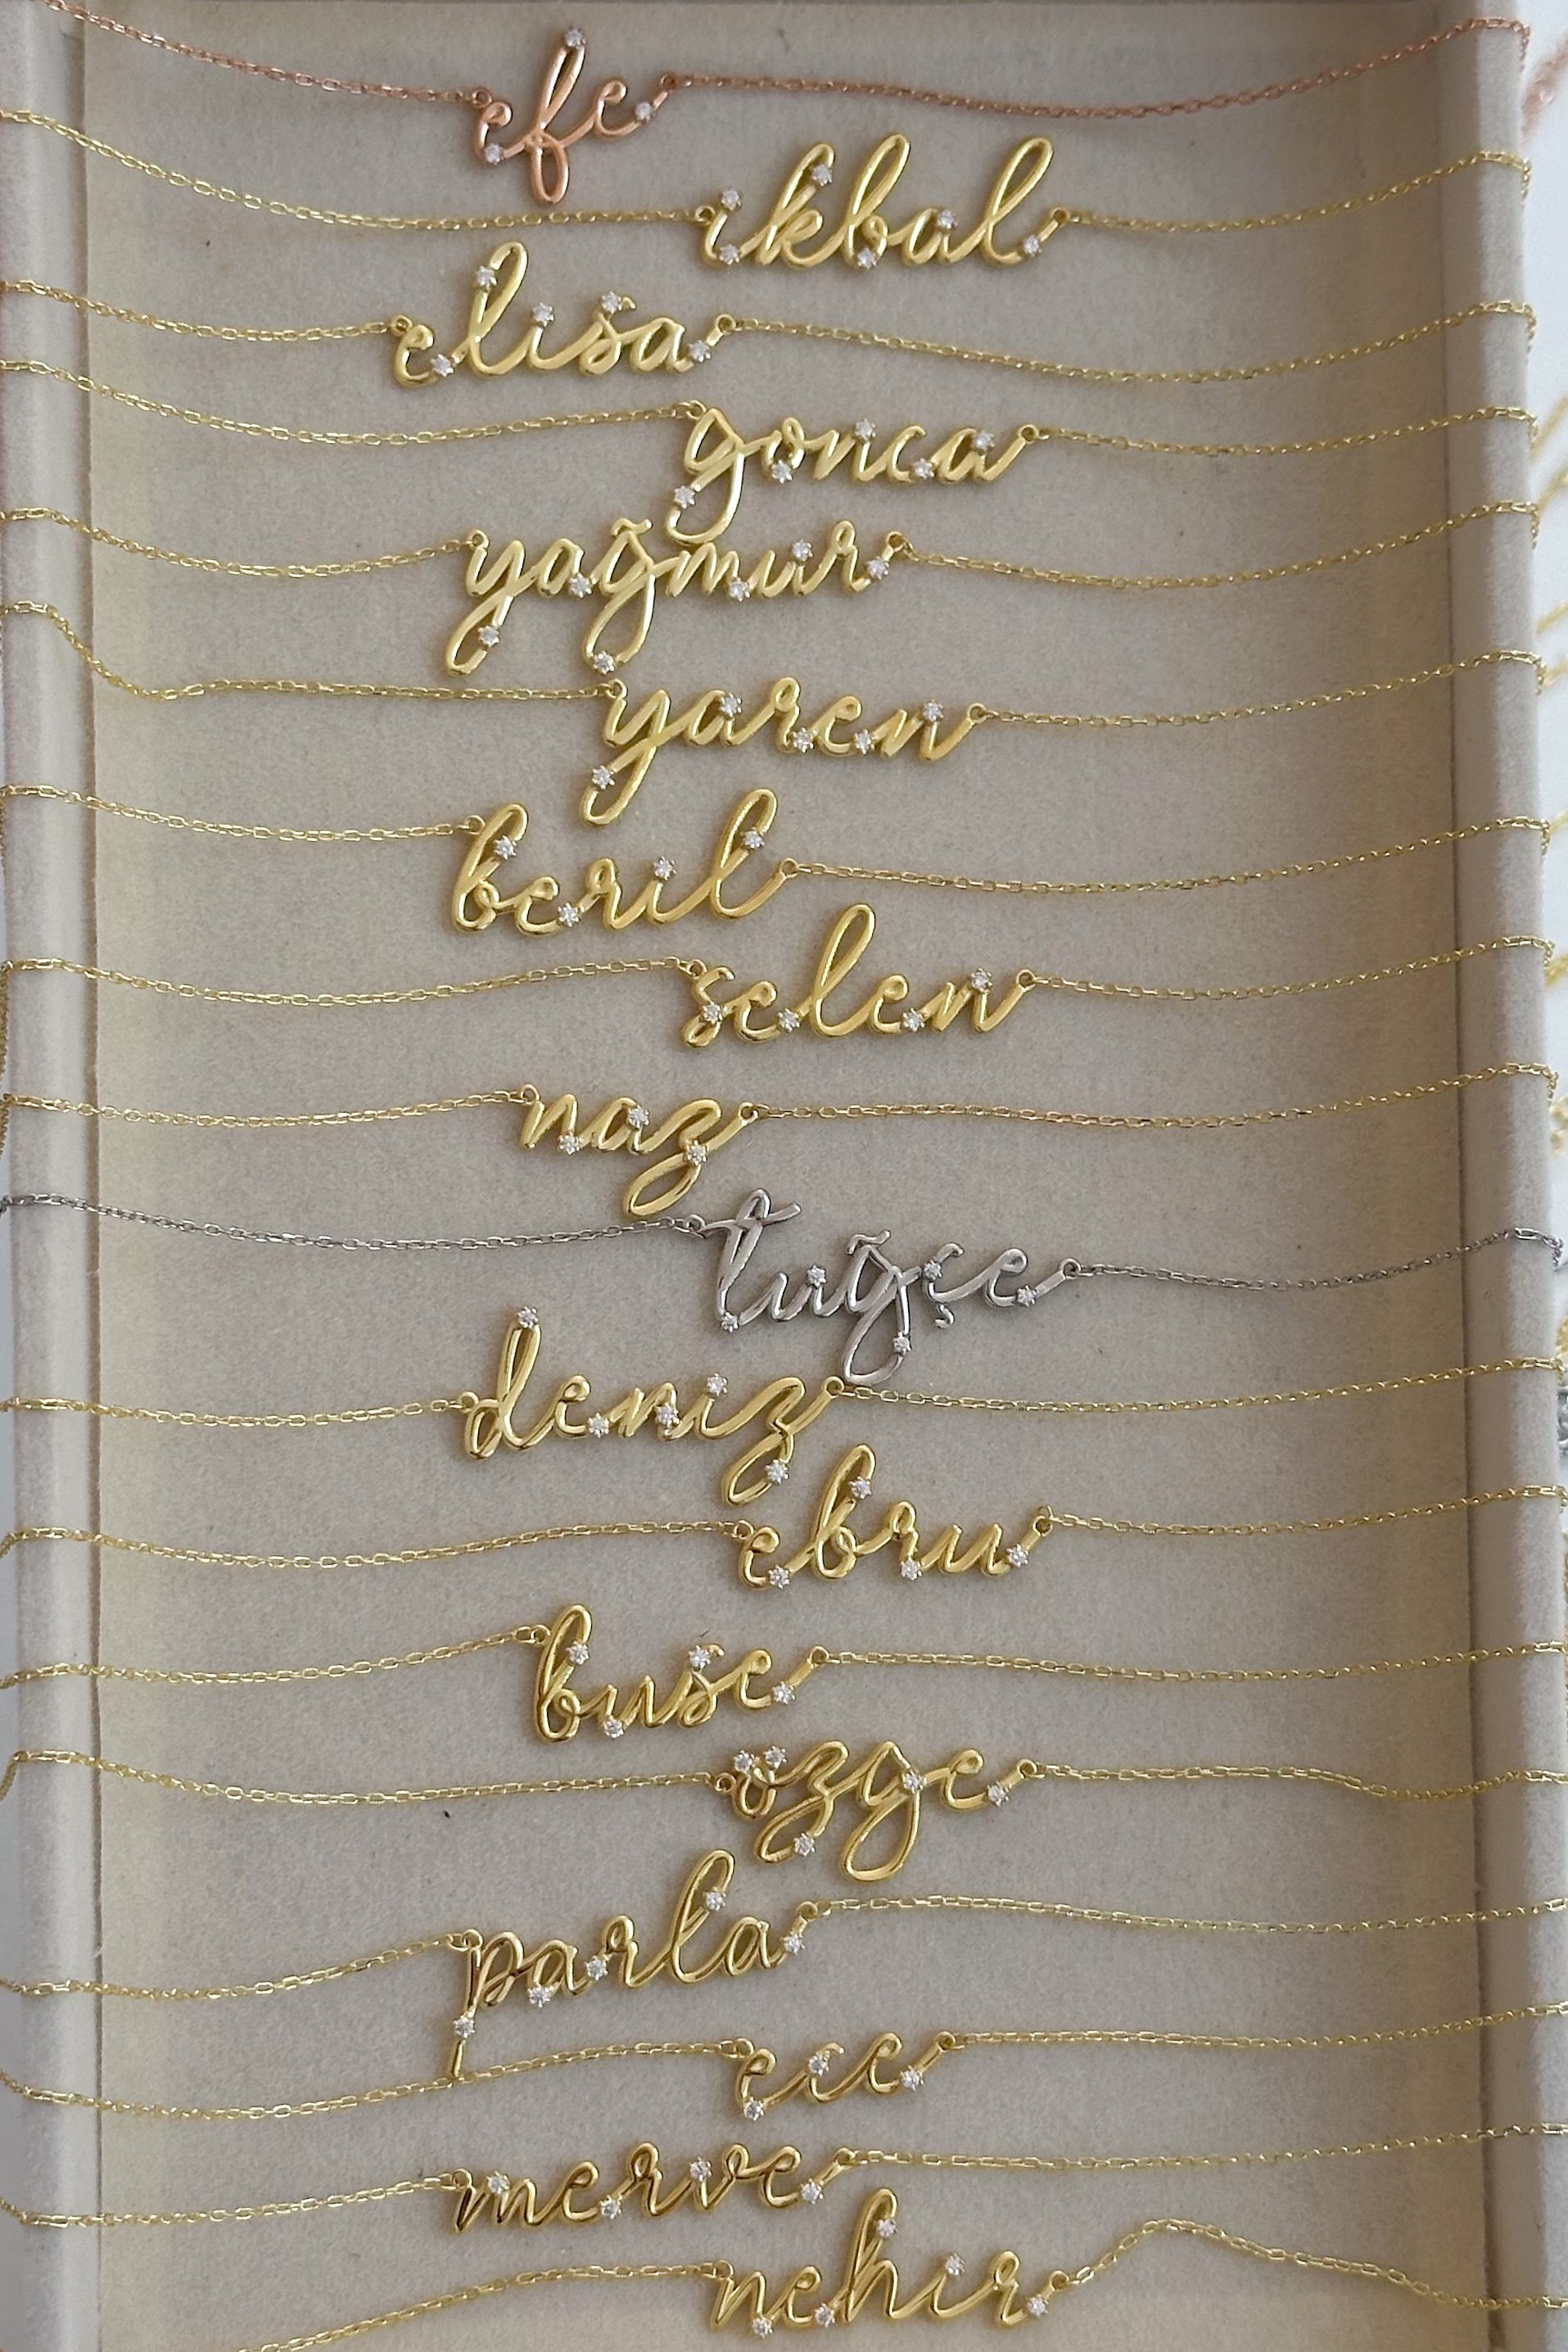 efe
ikbal
elisa
gonca
yağmur
yaren
beril
selen
naz
tuğçe
deniz
ebru
buse
özge
parla
ece
merve
nehir